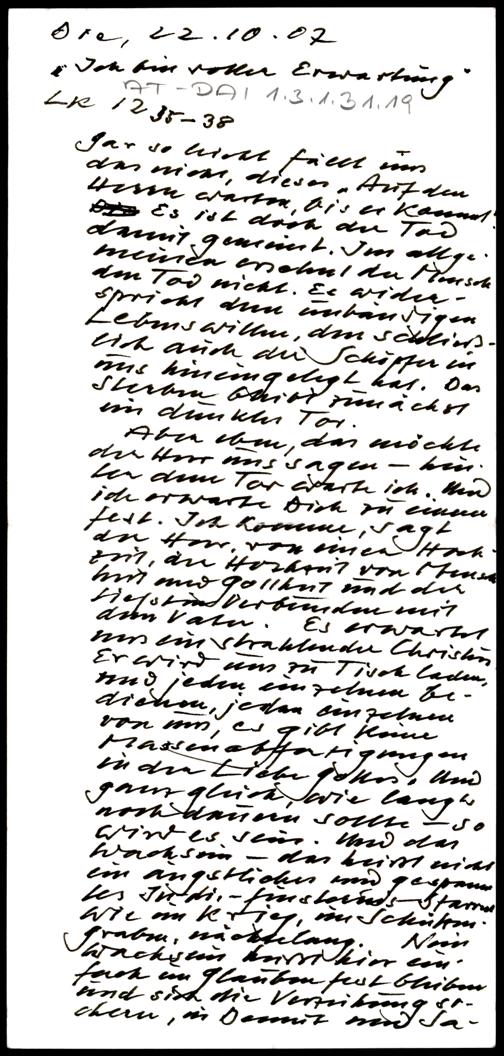 Die, 22.10.02
"Ich bin voller Erwartung"
AT-DAI 1.3.1.31.19
LK 12 35-38
Gar so leicht fällt uns
das nicht, dieses "Auf den
Herrn warten, bis er kommt."
Es ist doch der Tod
damit gemeint. Im allge-
meinen ersehnt der Mensch
den Tod nicht. Es wider-
spricht dem unbändigen
Lebenswillen, den schließ-
lich auch der Schöpfer in
uns hineingelegt hat. Das
Sterben bleibt zunächst
ein dunkles Tor.
Aber eben, das möchte
der Herr uns sagen – hin-
ter dem Tor warte ich. Und
ich erwarte Dich zu einem
Fest. Ich komme, sagt
der Herr, von einer Hoch-
zeit, der Hochzeit von Mensch
heit und Gottheit und der
tiefsten Verbunden mit
dem Vater. Es erwartet
uns ein strahlender Christus
Er wird uns zu Tisch laden,
und jeden einzelnen be-
dienen, jeden einzelnen
von uns, es gibt keine
Massenabfertigungen
in der Liebe Gottes. Und
ganz gleich, wie lang's
noch dauern sollte – so
wird es sein. Und das
Wachsein – das heisst nicht
ein ängstliches und gespann
tes In-die-Finsternis-Starren
wie im Krieg, im Schützen-
graben, nächtelang. Nein
Wachsein heisst hier ein-
fach im Glauben fest bleiben
und sich die Verzeihung si-
chern, in Demut und Ja-